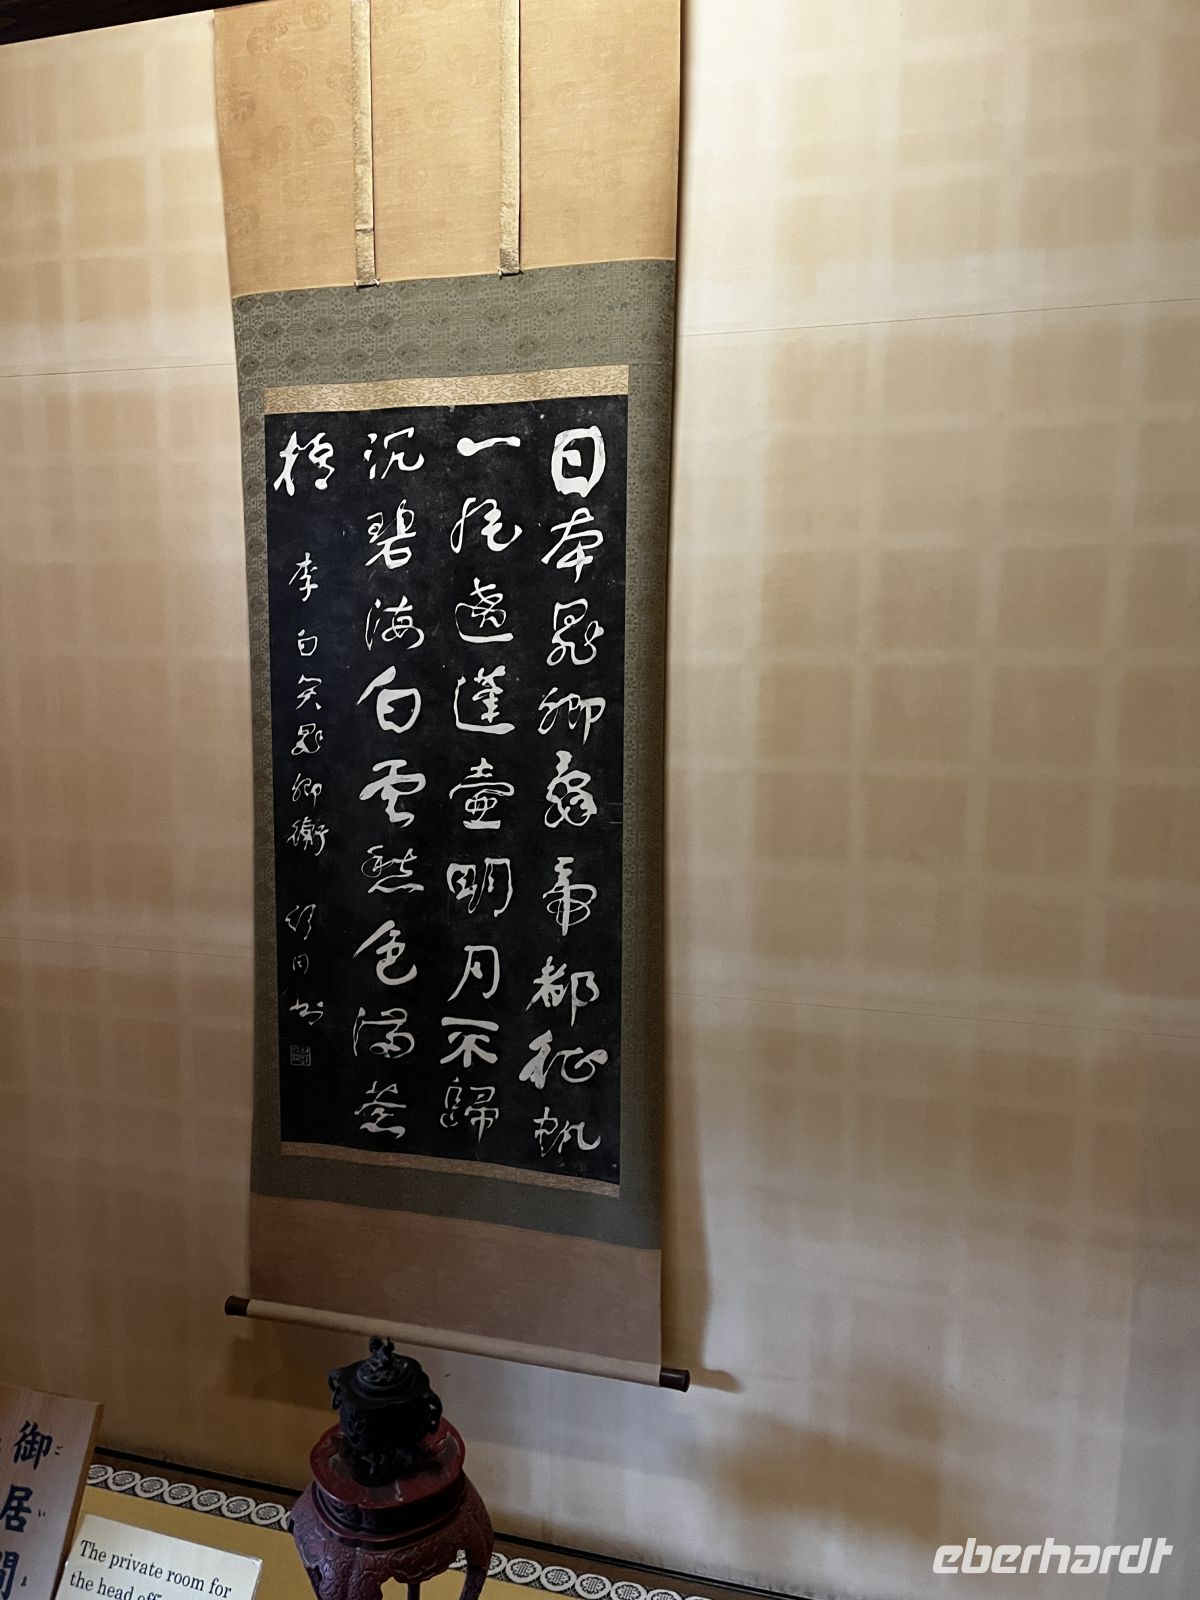 日本晁卿辭帝都征帆
一片遶蓬壺明月不歸
沉碧海白雲愁色滿蒼
梧 李白哭晁卿衡 舒同书
御居間
ご い ま
The private room for
the head
eberhardt